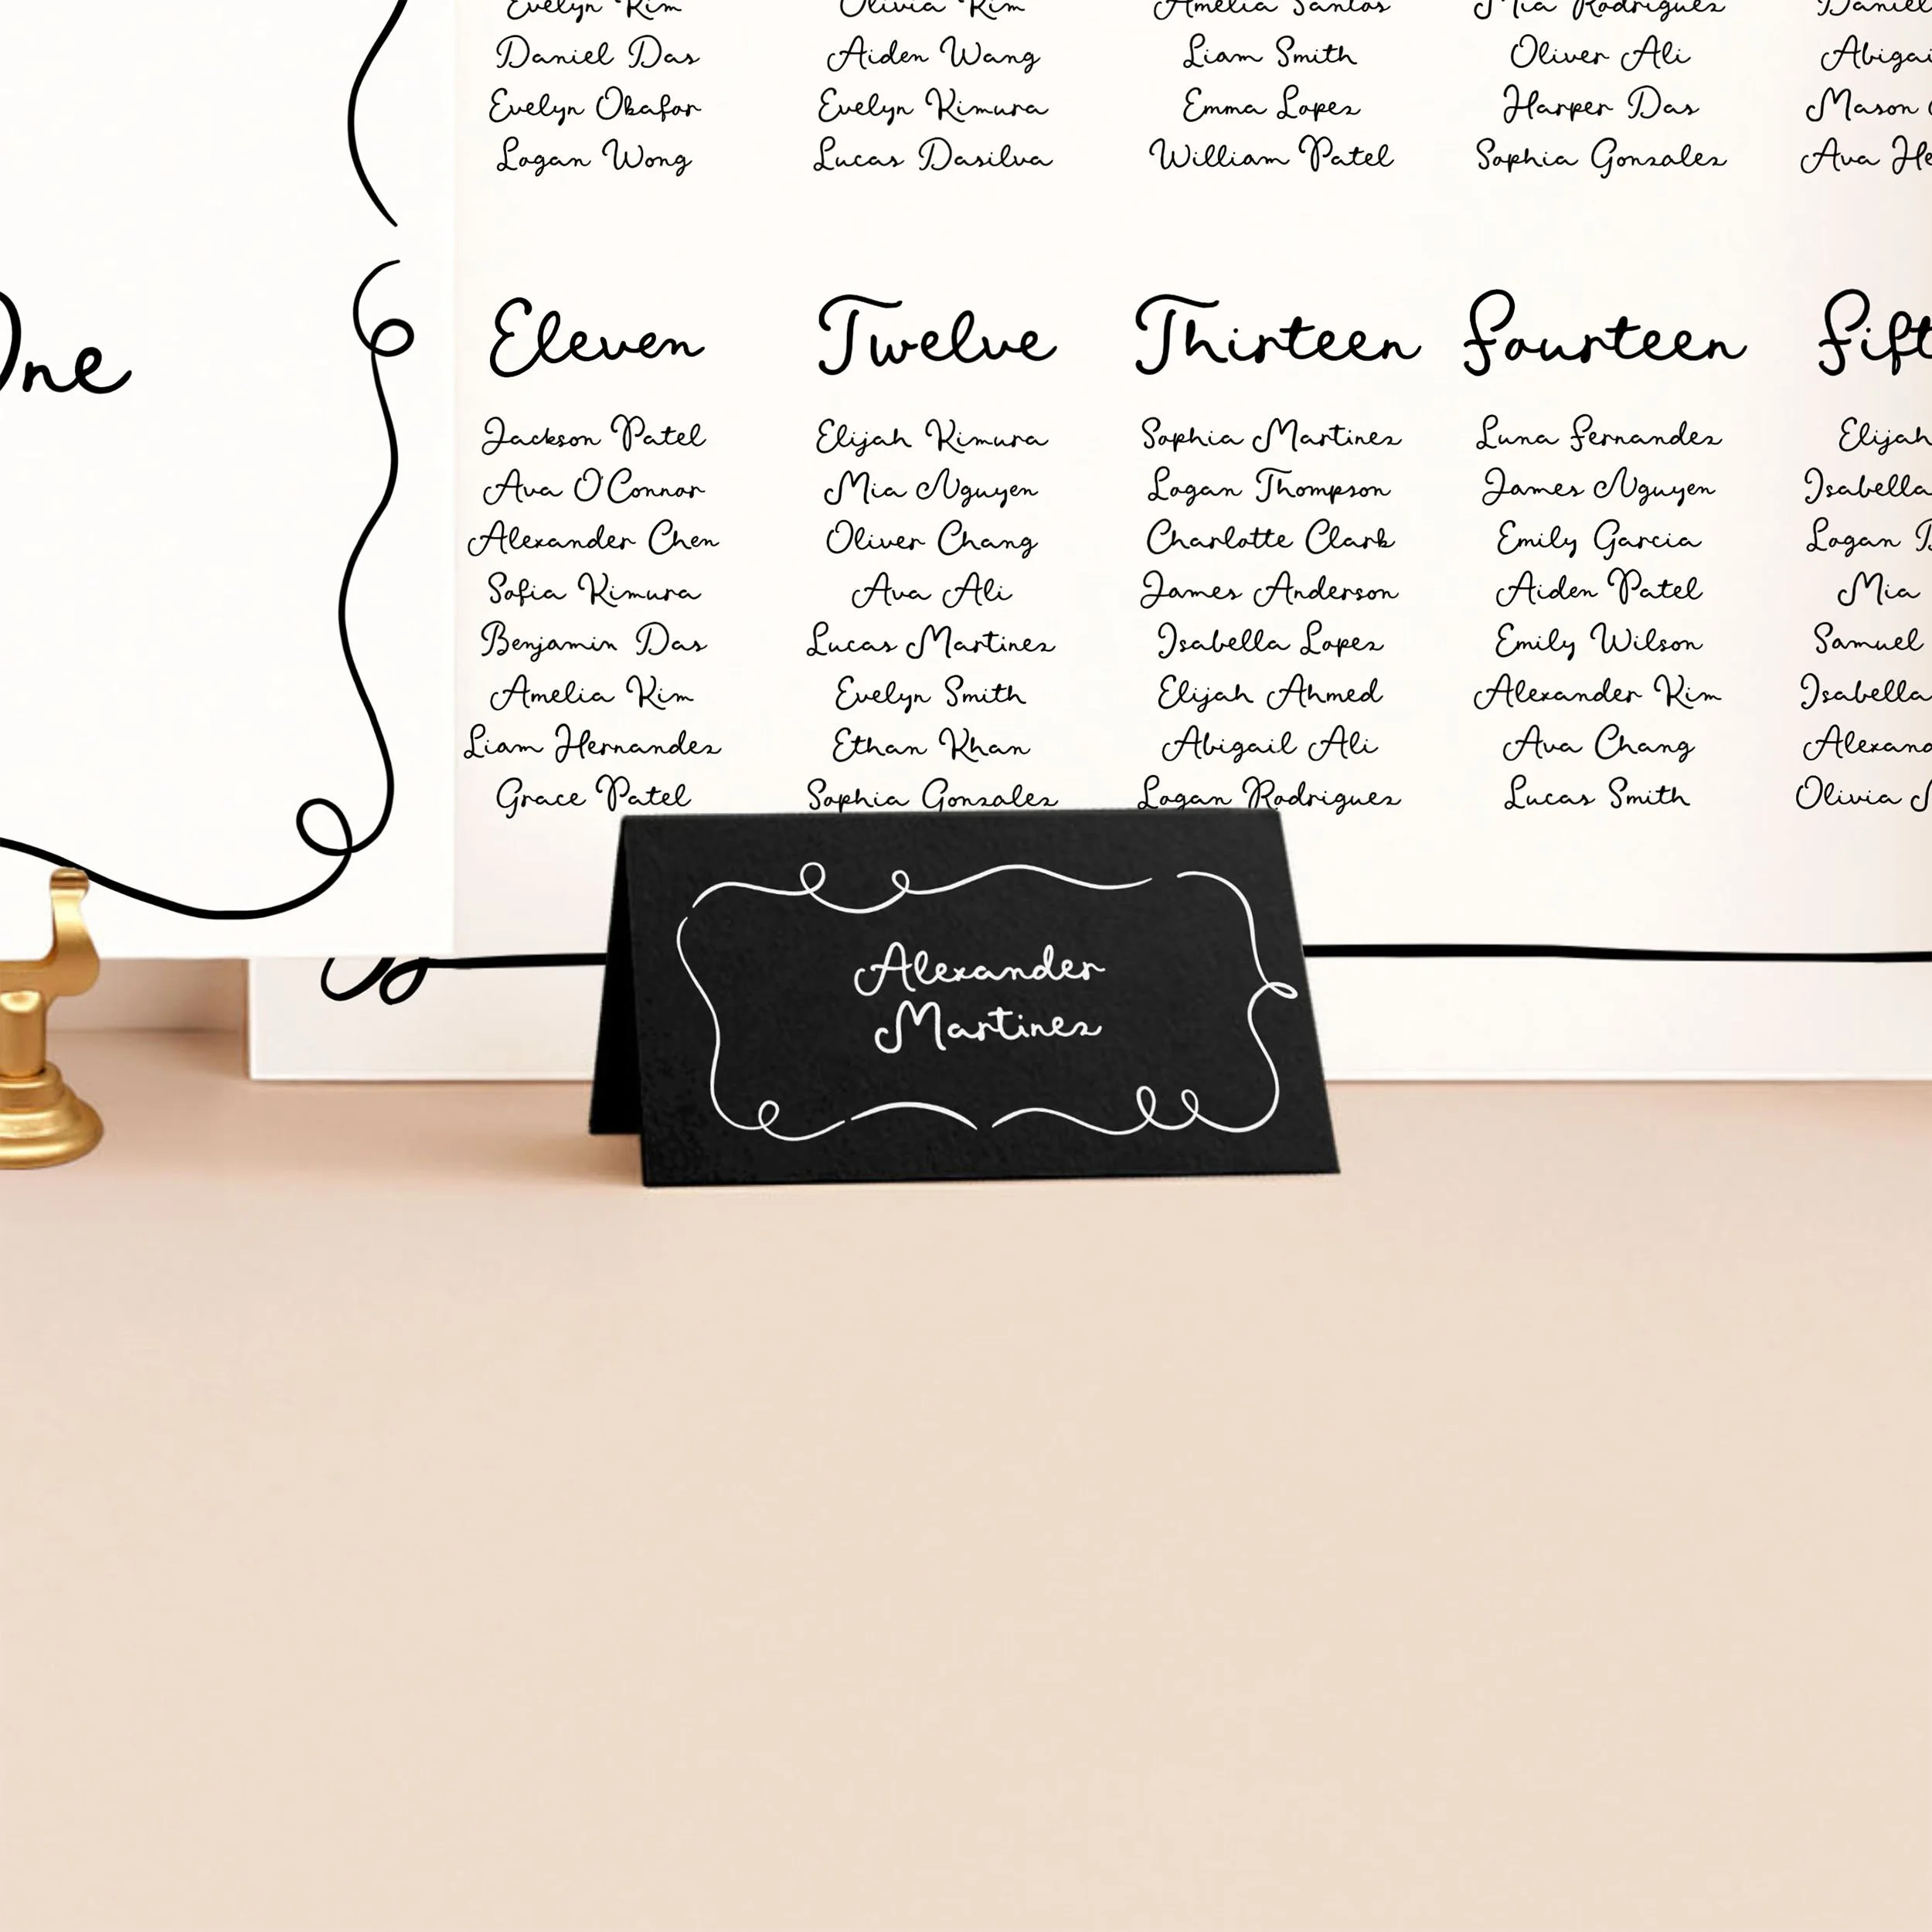 One
Evelyn Kim
Daniel Das
Evelyn Okafor
Logan Wong
Olivia Kim
Aiden Wang
Evelyn Kimura
Lucas Dasilva
Amelia Santos
Liam Smith
Emma Lopez
William Patel
Mia Rodriguez
Oliver Ali
Harper Das
Sophia Gonzalez
Daniel
Abigai
Mason
Ava He
Eleven
Jackson Patel
Ava O'Connor
Alexander Chen
Sofia Kimura
Benjamin Das
Amelia Kim
Liam Hernandez
Grace Patel
Twelve
Elijah Kimura
Mia Nguyen
Oliver Chang
Ava Ali
Lucas Martinez
Evelyn Smith
Ethan Khan
Sophia Gonzalez
Thirteen
Sophia Martinez
Logan Thompson
Charlotte Clark
James Anderson
Isabella Lopez
Elijah Ahmed
Abigail Ali
Logan Rodriguez
Fourteen
Luna Fernandez
James Nguyen
Emily Garcia
Aiden Patel
Emily Wilson
Alexander Kim
Ava Chang
Lucas Smith
Fift
Elijah
Isabella
Logan
Mia
Samuel
Isabella
Alexand
Olivia
Alexander
Martinez